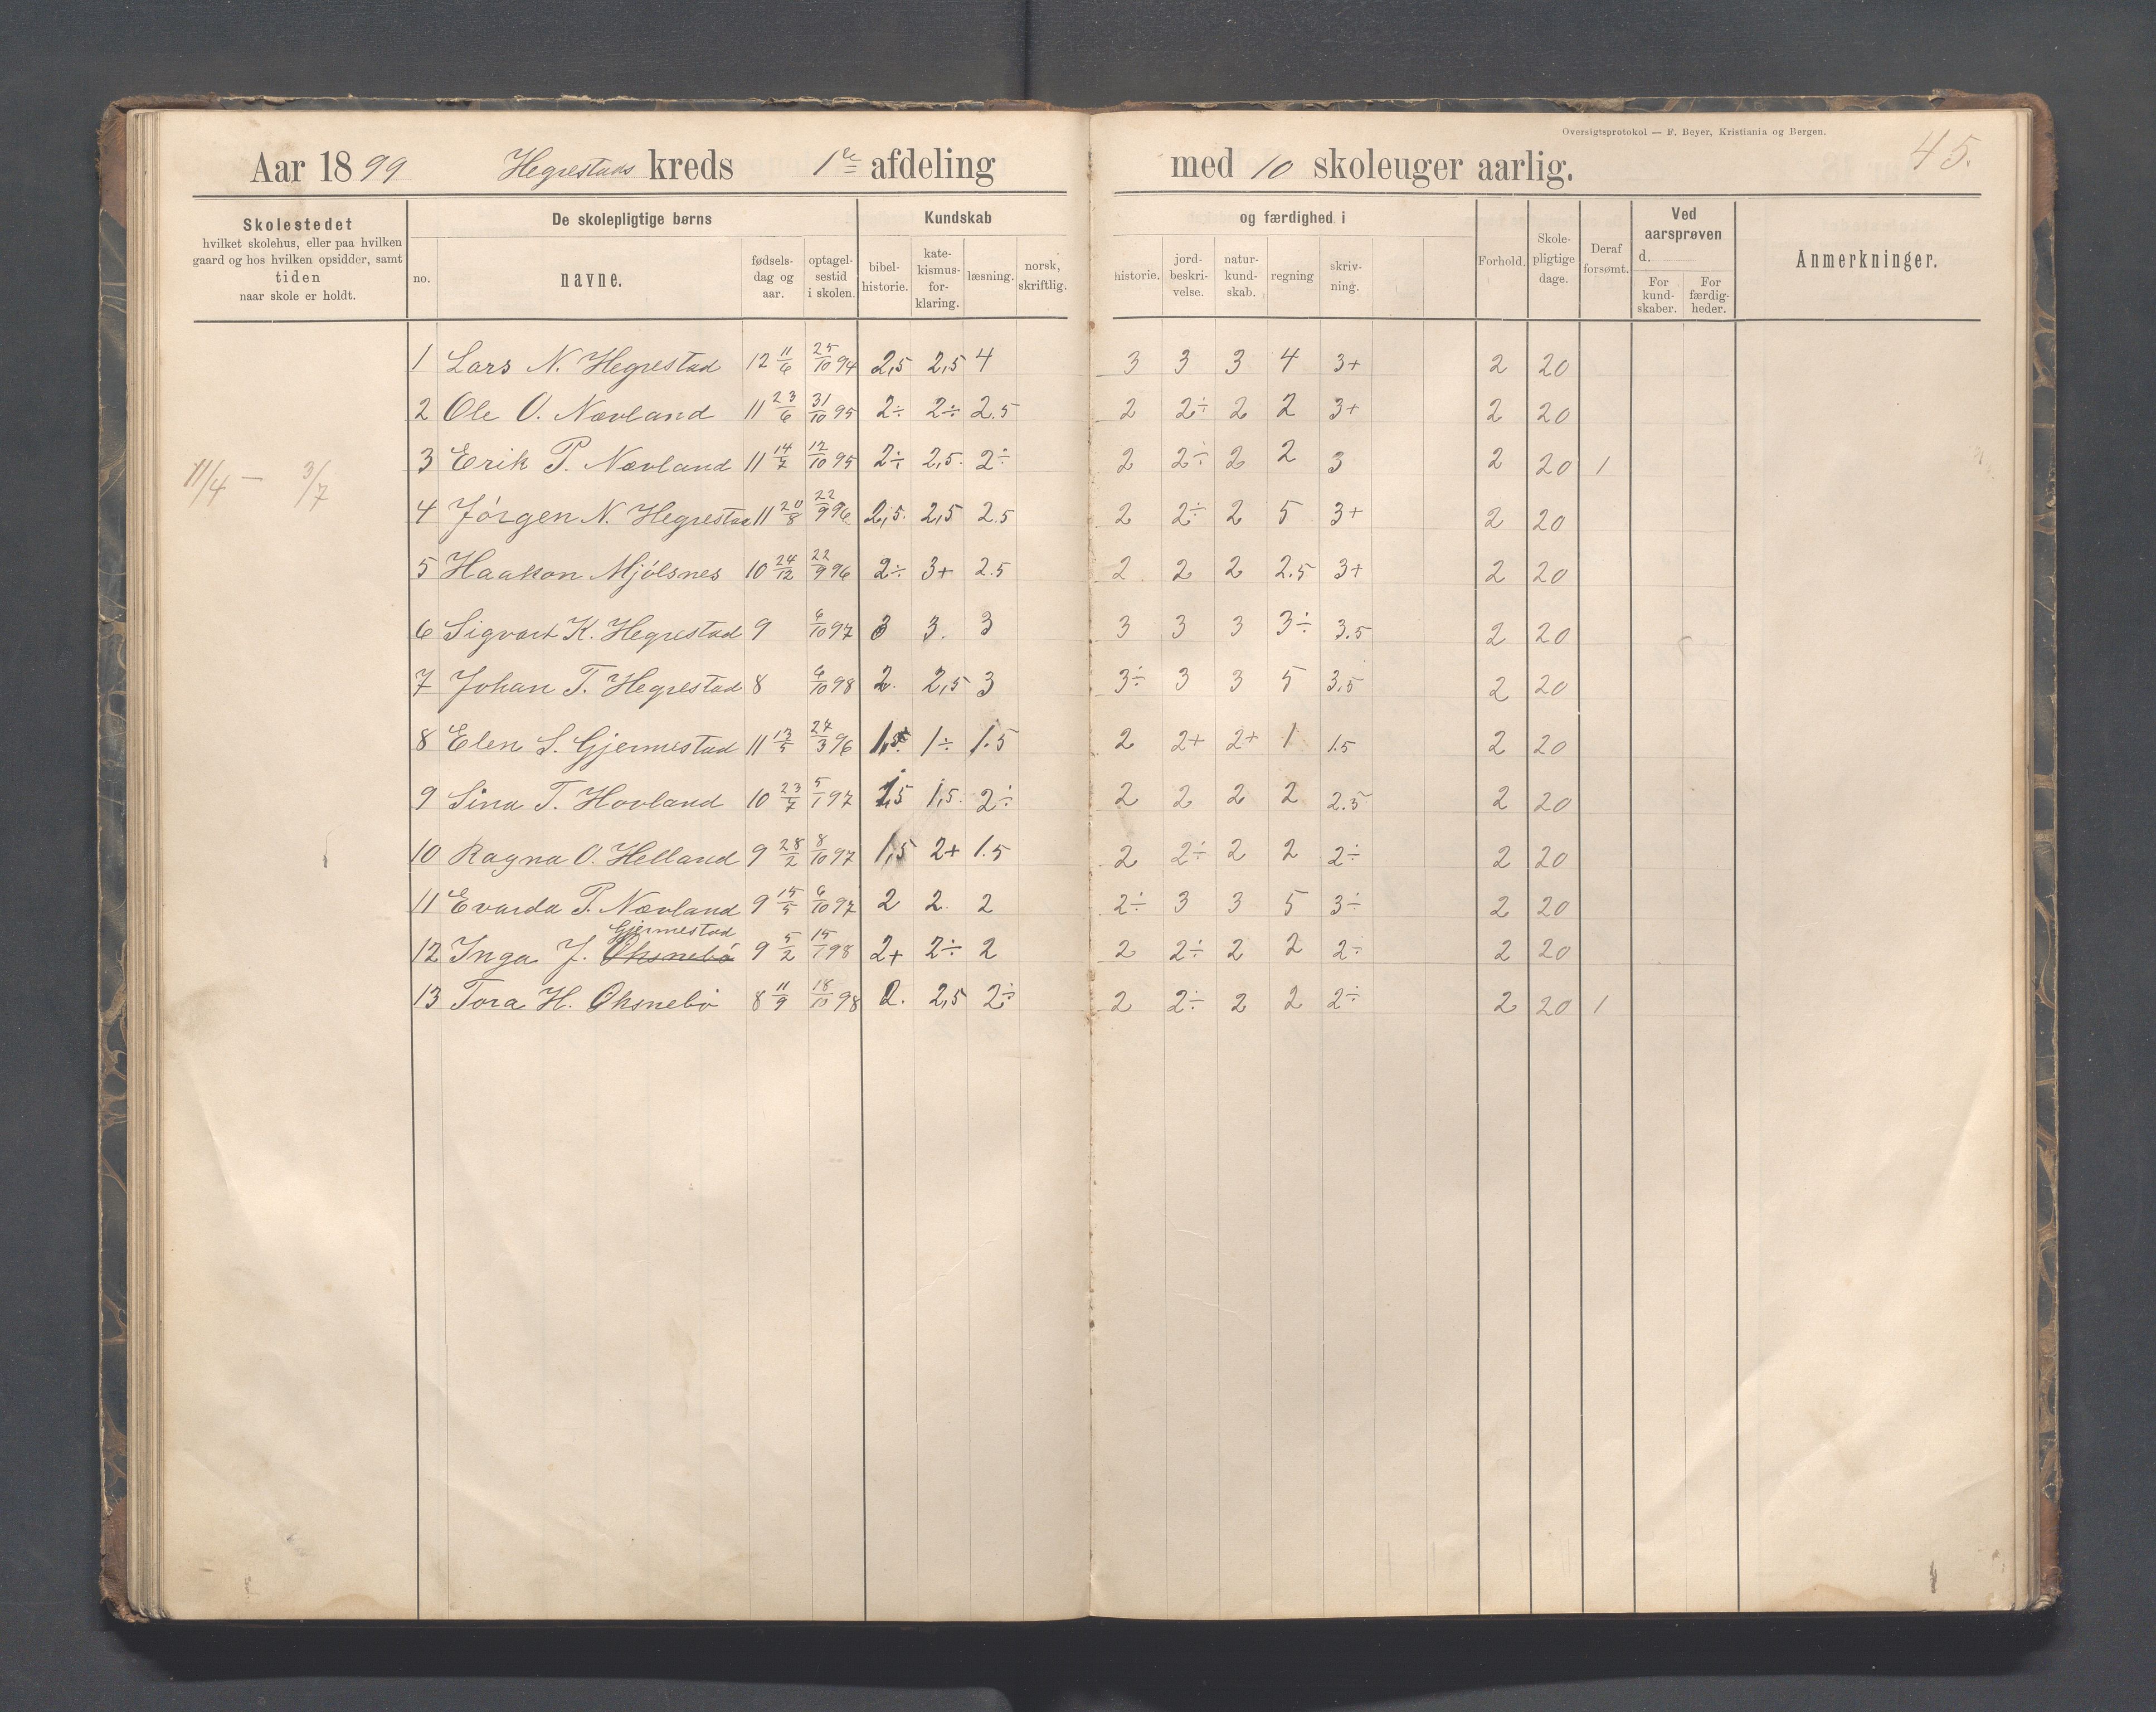 Oversigtsprotokol — F. Beyer, Kristiania og Bergen.
45.
Aar 1899 Hegrestads kreds 1ste afdeling med 10 skoleuger aarlig.
Skolestedet
hvilket skolehus, eller paa hvilken
gaard og hos hvilken opsidder, samt
tiden
naar skole er holdt.
De skolepligtige børns
no.
navne.
fødsels-
dag og
aar.
optagel-
sestid
i skolen.
Kundskab
bibel-
historie.
kate-
kismus-
for-
klaring.
læsning.
norsk,
skriftlig.
og færdighed i
historie.
jord-
beskri-
velse.
natur-
kund-
skab.
regning
skriv-
ning.
Forhold.
Skole-
pligtige
dage.
Deraf
forsømt.
Ved
aarsprøven
d.
For
kund-
skaber.
For
færdig-
heder.
Anmerkninger.
11/4 — 3/7
1 Lars N. Hegrestad 12 11/6 25/10 94 2,5 2,5 4 3 3 3 4 3+ 2 20
2 Ole O. Nævland 11 23/6 31/10 95 2÷ 2÷ 2.5 2 2÷ 2 2 3+ 2 20
3 Erik P. Nævland 11 14/7 12/10 95 2÷ 2,5. 2÷ 2 2÷ 2 2 3 2 20 1
4 Jörgen N. Hegrestad 11 20/8 22/9 96 2,5. 2,5 2.5 2 2÷ 2 5 3+ 2 20
5 Haakon Mjölsnes 10 24/12 22/9 96 2÷ 3+ 2.5 2 2 2 2.5 3+ 2 20
6 Sigvart K. Hegrestad 9 6/10 97 3 3. 3 3 3 3 3÷ 3.5 2 20
7 Johan T. Hegrestad 8 6/10 98 2. 2,5 3 3÷ 3 3 5 3,5 2 20
8 Elen S. Gjermestad 11 13/5 27/3 96 1,5 1÷ 1.5 2 2+ 2+ 1 1.5 2 20
9 Sina T. Hovland 10 23/7 5/1 97 1,5 1,5. 2÷ 2 2 2 2 2.5 2 20
10 Ragna O. Helland 9 28/2 8/10 97 1,5 2+ 1.5 2 2÷ 2 2 2÷ 2 20
11 Evarda P. Nævland 9 15/5 6/10 97 2 2. 2 2÷ 3 3 5 3÷ 2 20
Gjermestad
12 Inga J. Øksnebö 9 5/2 15/1 98 2+ 2÷ 2 2 2÷ 2 2 2÷ 2 20
13 Tora H. Øksnebö 8 11/9 18/10 98 2. 2,5 2÷ 2 2÷ 2 2 2÷ 2 20 1